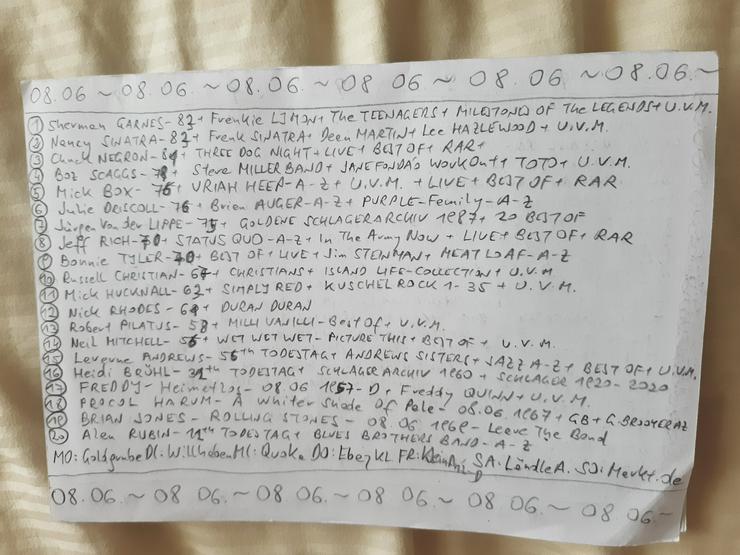 08.06. ~ 08.06. ~ 08.06. ~ 08 06. ~ 08.06. ~ 08.06. ~
① Sherman GARNES - 83 + Frenkie LIMON + The TEENAGERS + MILESTONES OF The LEGENDS + U.V.M.
2 Nancy SINATRA - 83 + Frenk SINATRA + Deen MARTIN + Lee HAZLEWOOD + U.V.M.
3 Chuck NEGRON - 84 + THREE DOG NIGHT + LIVE + BEST OF + RAR +
4 BOZ SCAGGS - + Steve MILLER BAND + JANE FONDA'S WORKOUT + TOTO + U.V.M.
5 MICK BOX - 76 + URIAH HEEP - A-Z + U.V.M. + LIVE + BEST OF + RAR
6 Julie DRISCOLL - 76 + Brien AUGER - A-Z + PURPLE - Femily - A-Z
7 Jürgen Von der LIPPE - 75 + GOLDENE SCHLAGERARCHIV 1987 + 20 BEST OF
8 Jeff RICH - 70 + STATUS QUO - A-Z + In The Army Now + LIVE + BEST OF + RAR
9 Bonnie TYLER - 70 + BEST OF + LIVE + Jim STEINMAN + MEAT LOAF - A-Z
10 Russell CHRISTIAN - + CHRISTIANS + ISLAND LIFE - COLLECTION + U.V.M
11 Mick HUCKNALL - 63 + SIMPLY RED + KUSCHELROCK 1-35 + U.V.M.
12 Nick RHODES - 61 + DURAN DURAN
13 Robert PILATUS - 58 + MILLI VANILLI - Best Of + U.V.M.
14 Neil MITCHELL - 56 + WET WET WET - PICTURE THIS + BEST OF + U.V.M.
15 Leverne ANDREWS - 56th TODESTAG + ANDREWS SISTERS + JAZZ A-Z + BEST OF + U.V.M.
16 Heidi BRÜHL - 32th TODESTAG + SCHLAGERARCHIV 1960 + SCHLAGER 1920-2020
17 FREDDY - Heimetlos - 08.06 1957 - D + Freddy QUINN + U.V.M.
18 PROCOL HARUM - A Whiter Shade Of Pale - 08.06.1967 + GB + G.BROOKER AZ
19 BRIAN JONES - ROLLING STONES - 08.06 1969 - Leave The Band
20 Alen RUBIN - 12th TODESTAG + BLUES BROTHERS BAND - A-Z
MO: Goldgrube DI: Willheben MI: Quoka DO: Ebey KL FR: SA: LändleA. SO: Merkt.de
08.06. ~ 08.06. ~ 08.06. ~ 08.06. ~ 08.06. ~ 08.06. ~